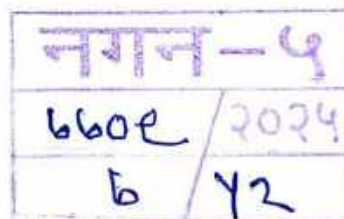 नगन-५
७७०९/२०२५
७/५२